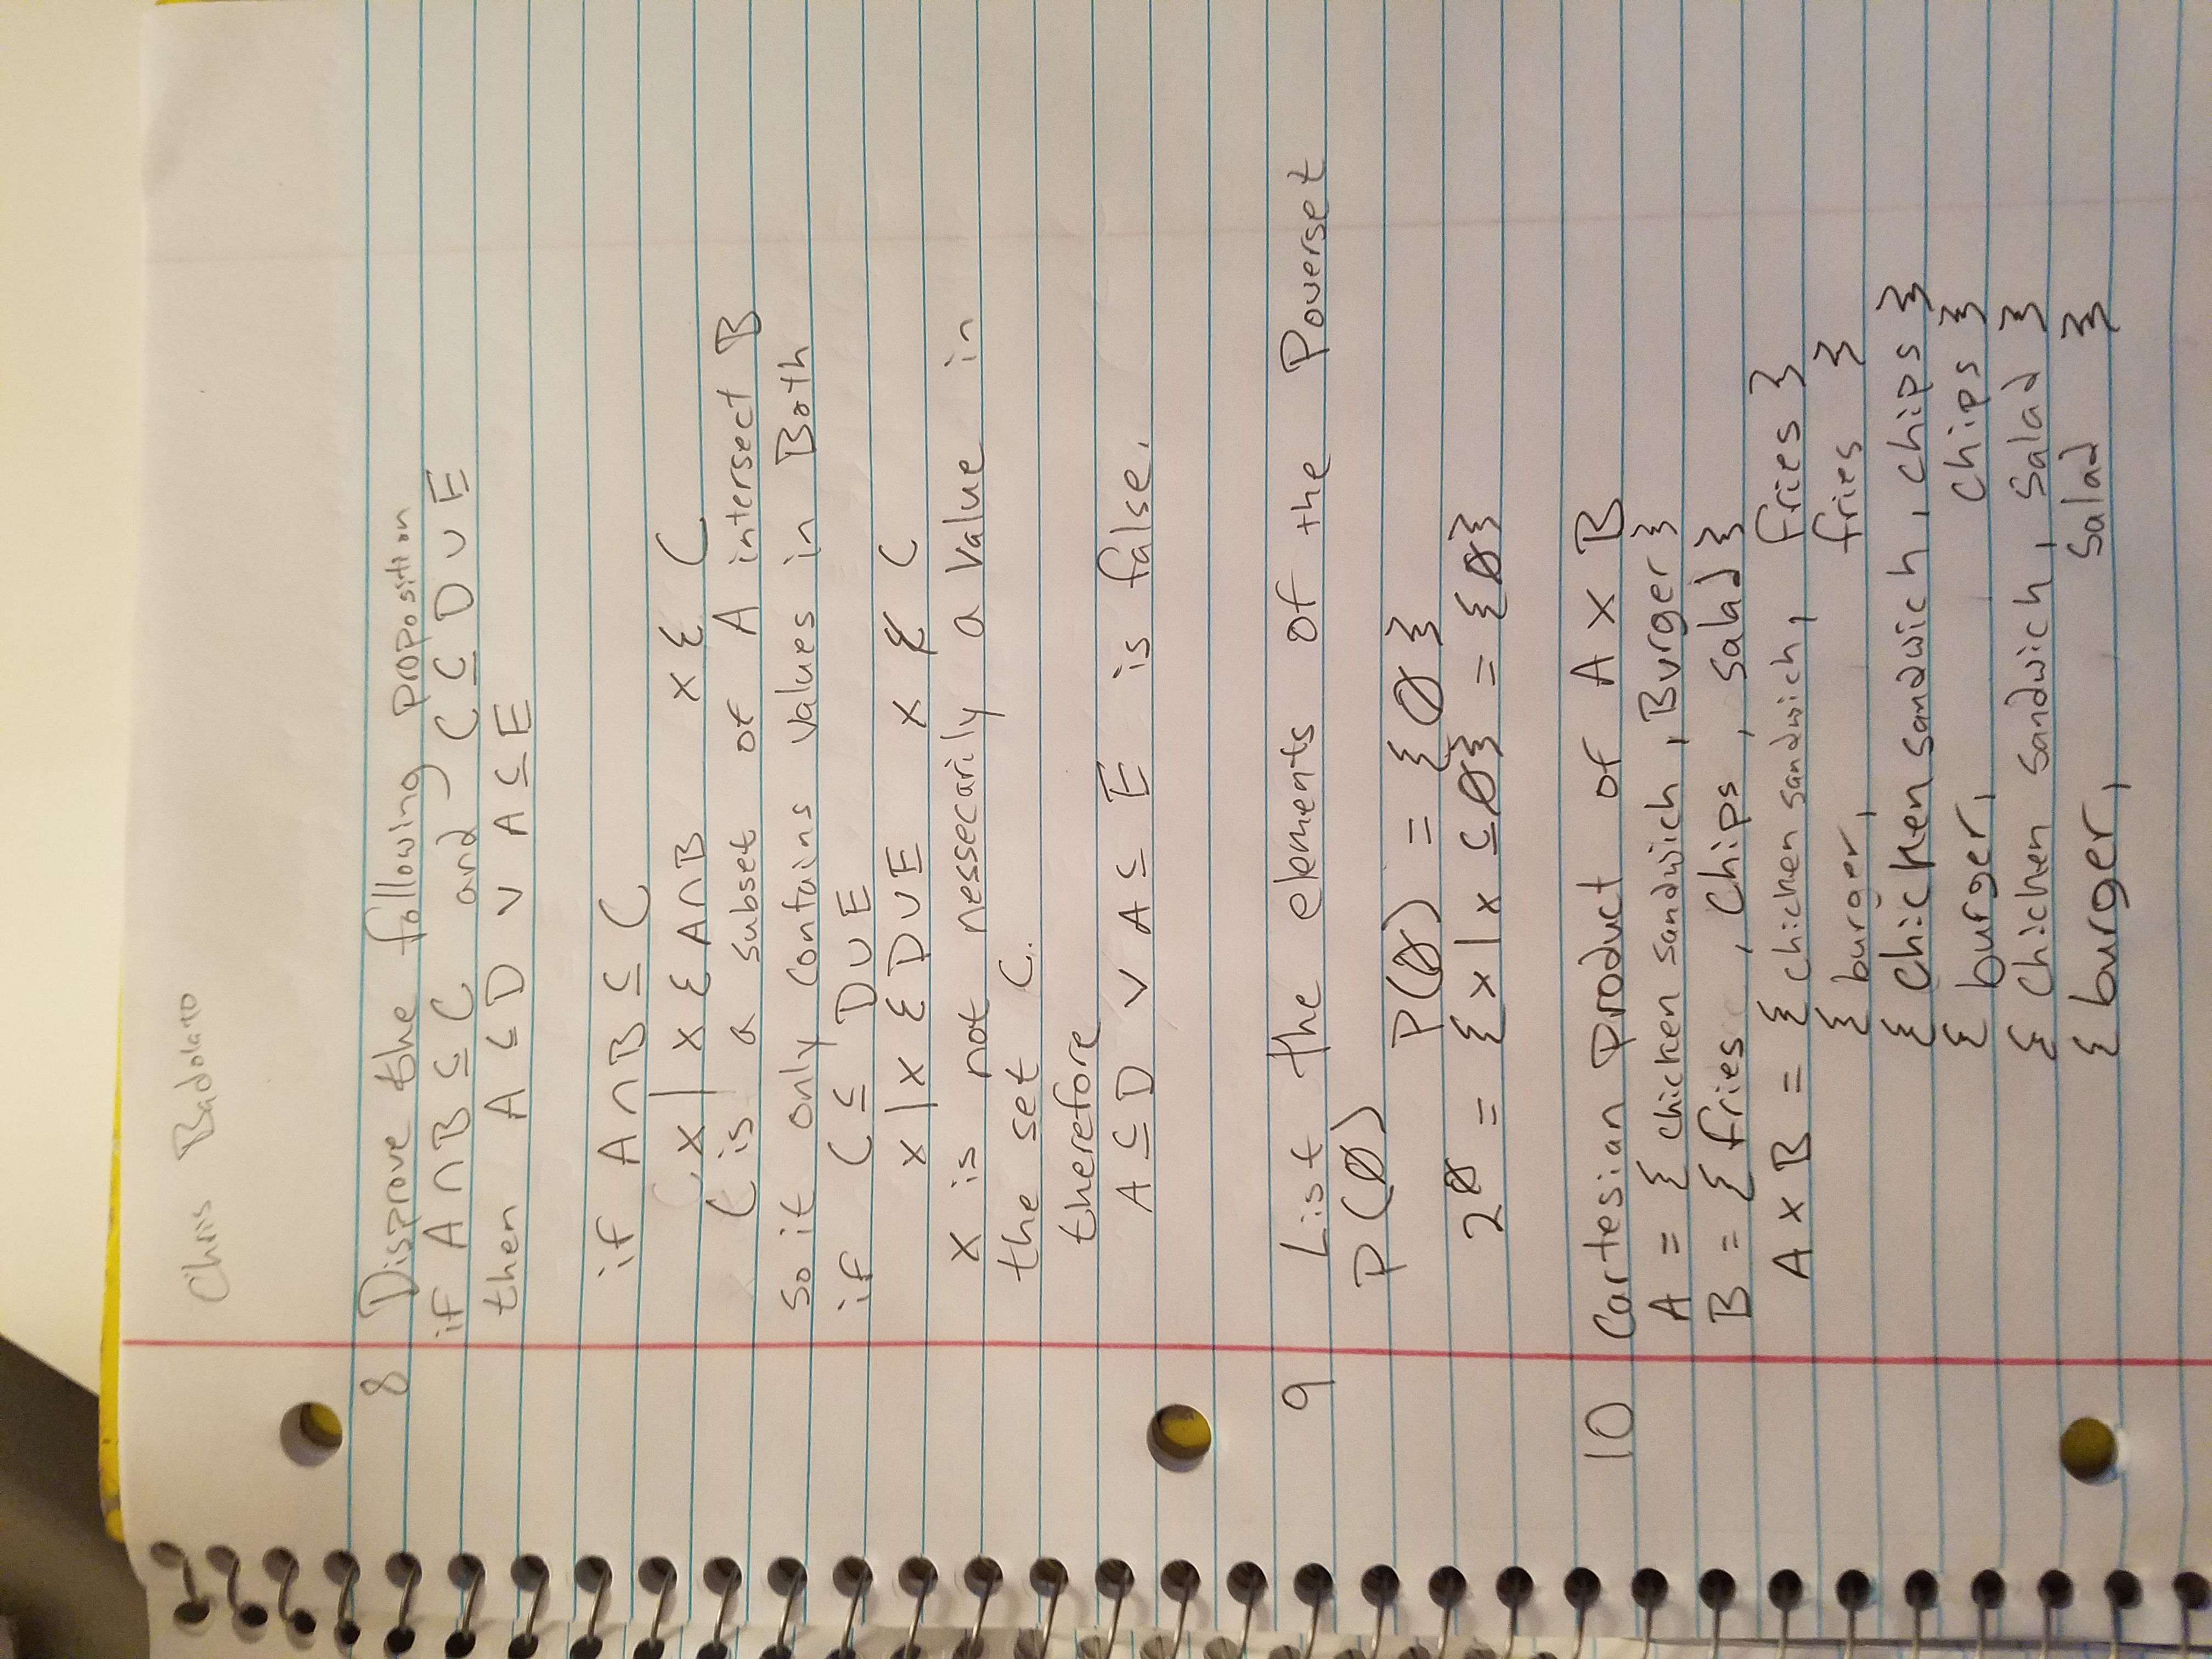 Chris Badolato
8 Disprove the following proposition
if A ∩ B ⊆ C and C ⊆ D ∪ E
then A ⊆ D ∨ A ⊆ E
if A ∩ B ⊆ C
x | x ∈ A∩B x ∈ C
C is a subset of A intersect B
so it only contains values in Both
if C ⊆ D ∪ E
x | x ∈ D ∪ E x ∉ C
x is not nessecarily a value in
the set C.
therefore
A ⊆ D ∨ A ⊆ E is false.
9 List the elements of the Powerset
P(∅)
P(∅) = {∅}
2^∅ = {x | x ⊆ ∅} = {∅}
10 Cartesian Product of A x B
A = { chicken sandwich , Burger }
B = { fries , Chips , salad }
A x B = { chicken sandwich, fries }
{ burger, fries }
{ chicken sandwich , chips }
{ burger, chips }
{ chicken sandwich , salad }
{ burger, salad }